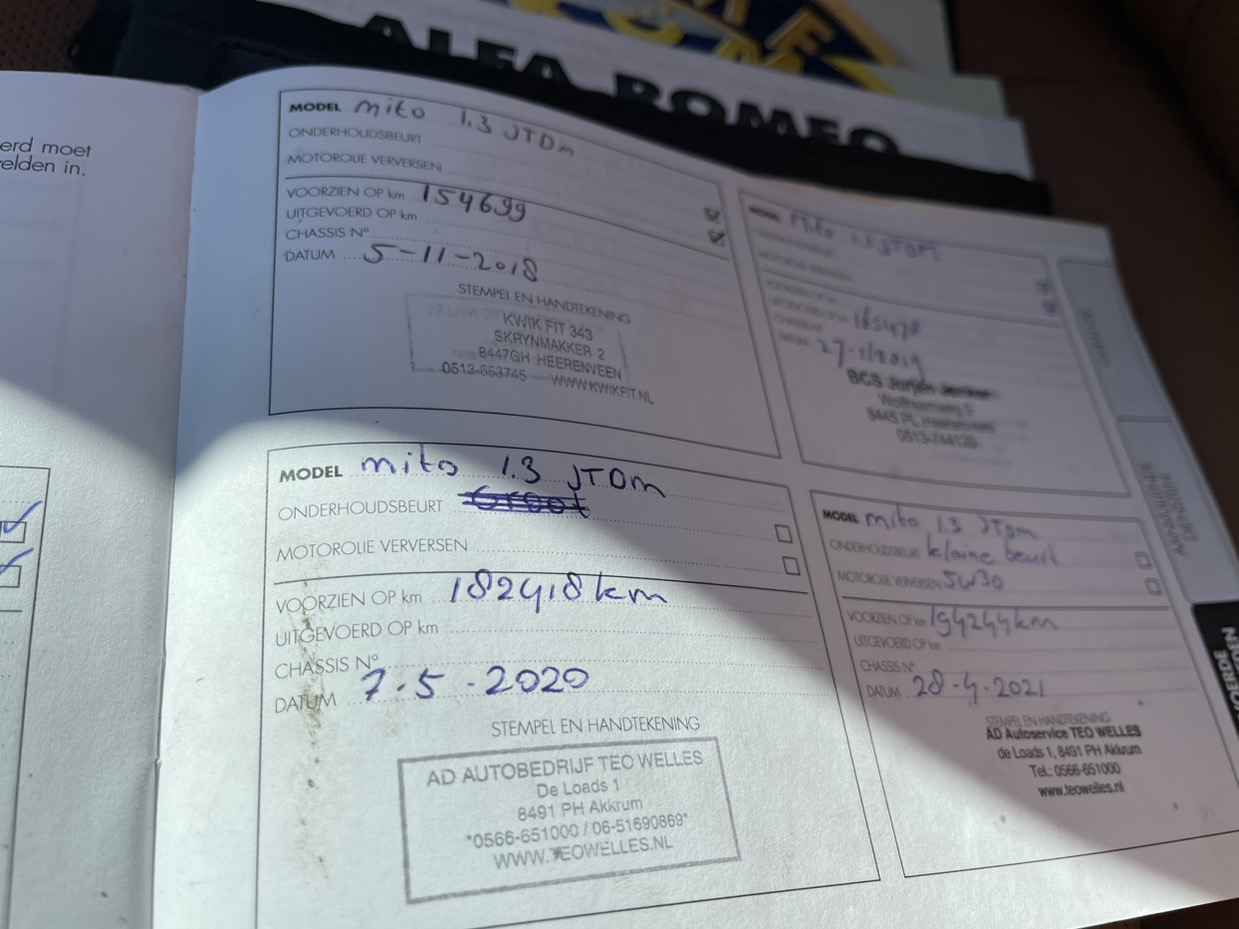 ALFA ROMEO
erd moet
elden in.
MODEL mito 1.3 JTDm
ONDERHOUDSBEURT
MOTOROLIE VERVERSEN
VOORZIEN OP km 154699
UITGEVOERD OP km
CHASSIS Nº
DATUM 5-11-2018
STEMPEL EN HANDTEKENING
KWIK FIT 343
SKRYNMAKKER 2
8447GH HEERENVEEN
0513-653745 WWW.KWIKFIT.NL
MODEL mito 1.3 JTDm
BCS
0513-744120
MODEL mito 1.3 JTDm
ONDERHOUDSBEURT Groot
MOTOROLIE VERVERSEN
VOORZIEN OP km 182418 km
UITGEVOERD OP km
CHASSIS Nº
DATUM 7.5.2020
STEMPEL EN HANDTEKENING
AD AUTOBEDRIJF TEO WELLES
De Loads 1
8491 PH Akkrum
*0566-651000 / 06-51690869*
WWW.TEOWELLES.NL
MODEL mito 1.3 JTDm
ONDERHOUDSBEURT kleine beurt
MOTOROLIE VERVERSEN 5W30
VOORZIEN OP km 194244km
UITGEVOERD OP km
CHASSIS Nº
DATUM 28-4-2021
STEMPEL EN HANDTEKENING
AD Autoservice TEO WELLES
de Loads 1, 8491 PH Akkrum
Tel.: 0566-651000
www.teowelles.nl